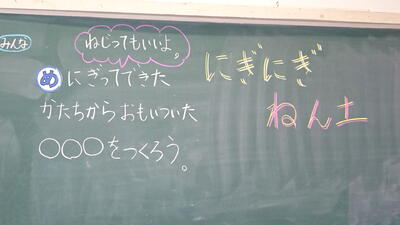 みんな
ねじってもいいよ。
め にぎってできた
かたちからおもいついた
○○○をつくろう。
にぎにぎ
ねん土